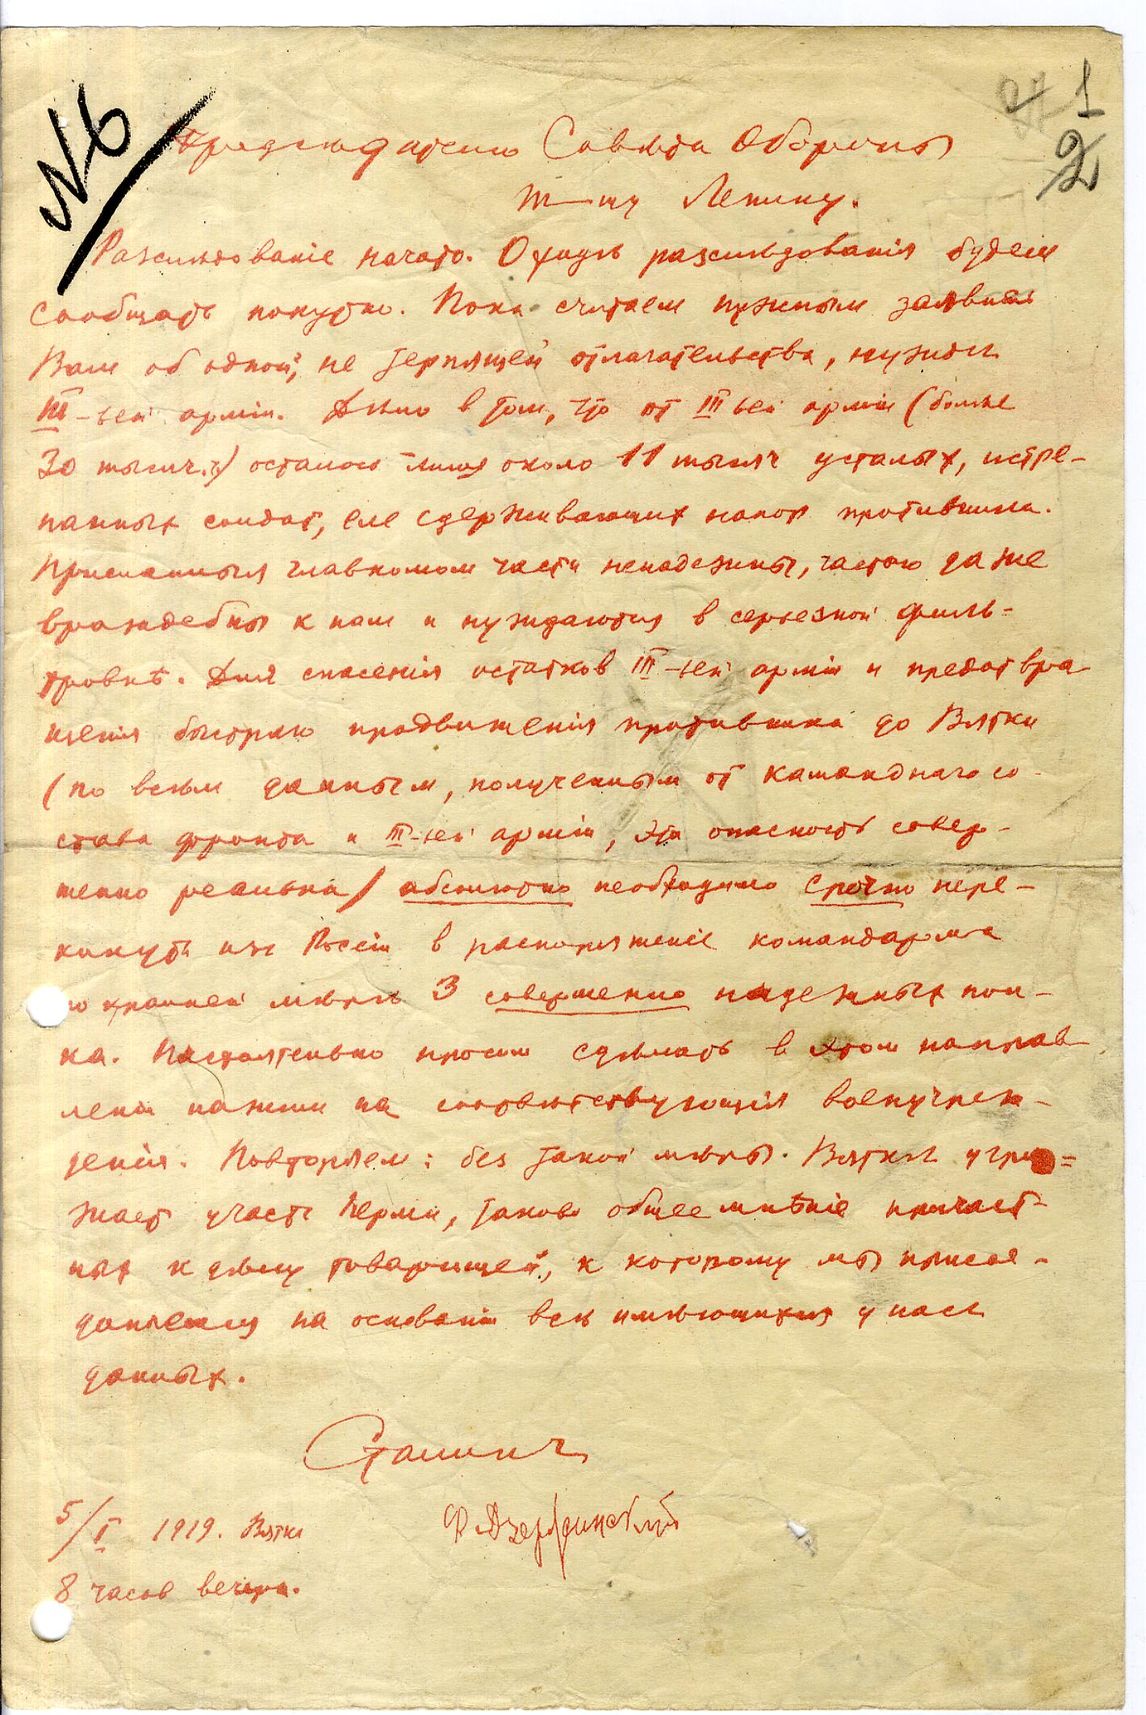 №6
27 1
2
Председателю Совѣта Обороны
т-щу Ленину.
Разслѣдованіе начато. О ходѣ разслѣдованія будем
сообщать попутно. Пока считаем нужным заявить
Вам об одной, не терпящей отлагательства, нуждѣ
III-ьей арміи. Дѣло в том, что от III-ьей арміи (болѣе
30 тысяч.) осталось лишь около 11 тысяч усталых, истре-
панных солдат, еле сдерживающих напор противника.
Присланныя главкомом части ненадежны, частью даже
враждебны к нам и нуждаются в серьезной филь-
тровкѣ. Для спасенія остатков III-ьей арміи и предотвра
щенія быстраго продвиженія противника до Вятки
(по всѣм данным, полученным от командного со-
става фронта и III-ьей арміи, эта опасность совер-
шенно реальна) абсолютно необходимо срочно пере-
кинуть из Россіи в распоряженіе командарма
по крайней мѣрѣ 3 совершенно надежных пол-
ка. Настоятельно просим сдѣлать в этом направ
леніи нажим на соотвѣтствующія военучреж-
денія. Повторяем: без такой мѣры Вяткѣ угро=
жает участь Перми, таково общее мнѣніе причаст-
ных к дѣлу товарищей, к которому мы присое-
диняемся на основаніи всѣх имѣющихся у нас
данных.
Сталин
5/I 1919. Вятка
Ф. Дзержинский
8 часов вечера.